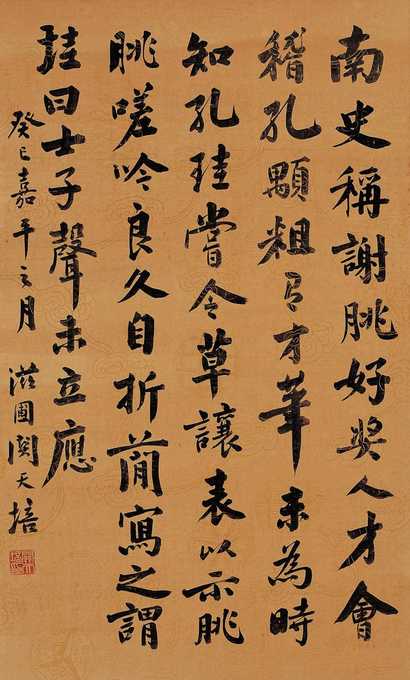 南史稱謝朓好奬人才會
稽孔顗粗有才華未為時
知孔珪嘗令草讓表以示朓
朓嗟吟良久自折簡寫之謂
珪曰士子聲未立應
癸巳嘉平之月 滋圃関天培